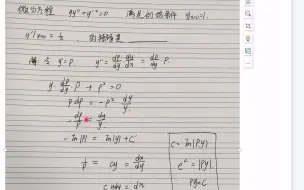 微分方程 yy''+y'²=0 满足初始条件 y|x=0=1.
y'|x=0=½ 的特解是
解 令 y'=p. y''=dp/dy dy/dx=dp/dy p.
y·dp/dy·p+p²=0
p dp=-p² dy/y.
-dp/p=dy/y
-ln|p|=ln|y|+C
c=ln|Py|
1/p=cy=dx/dy
e^c=|Py|.
Py=C
c y dy=dx